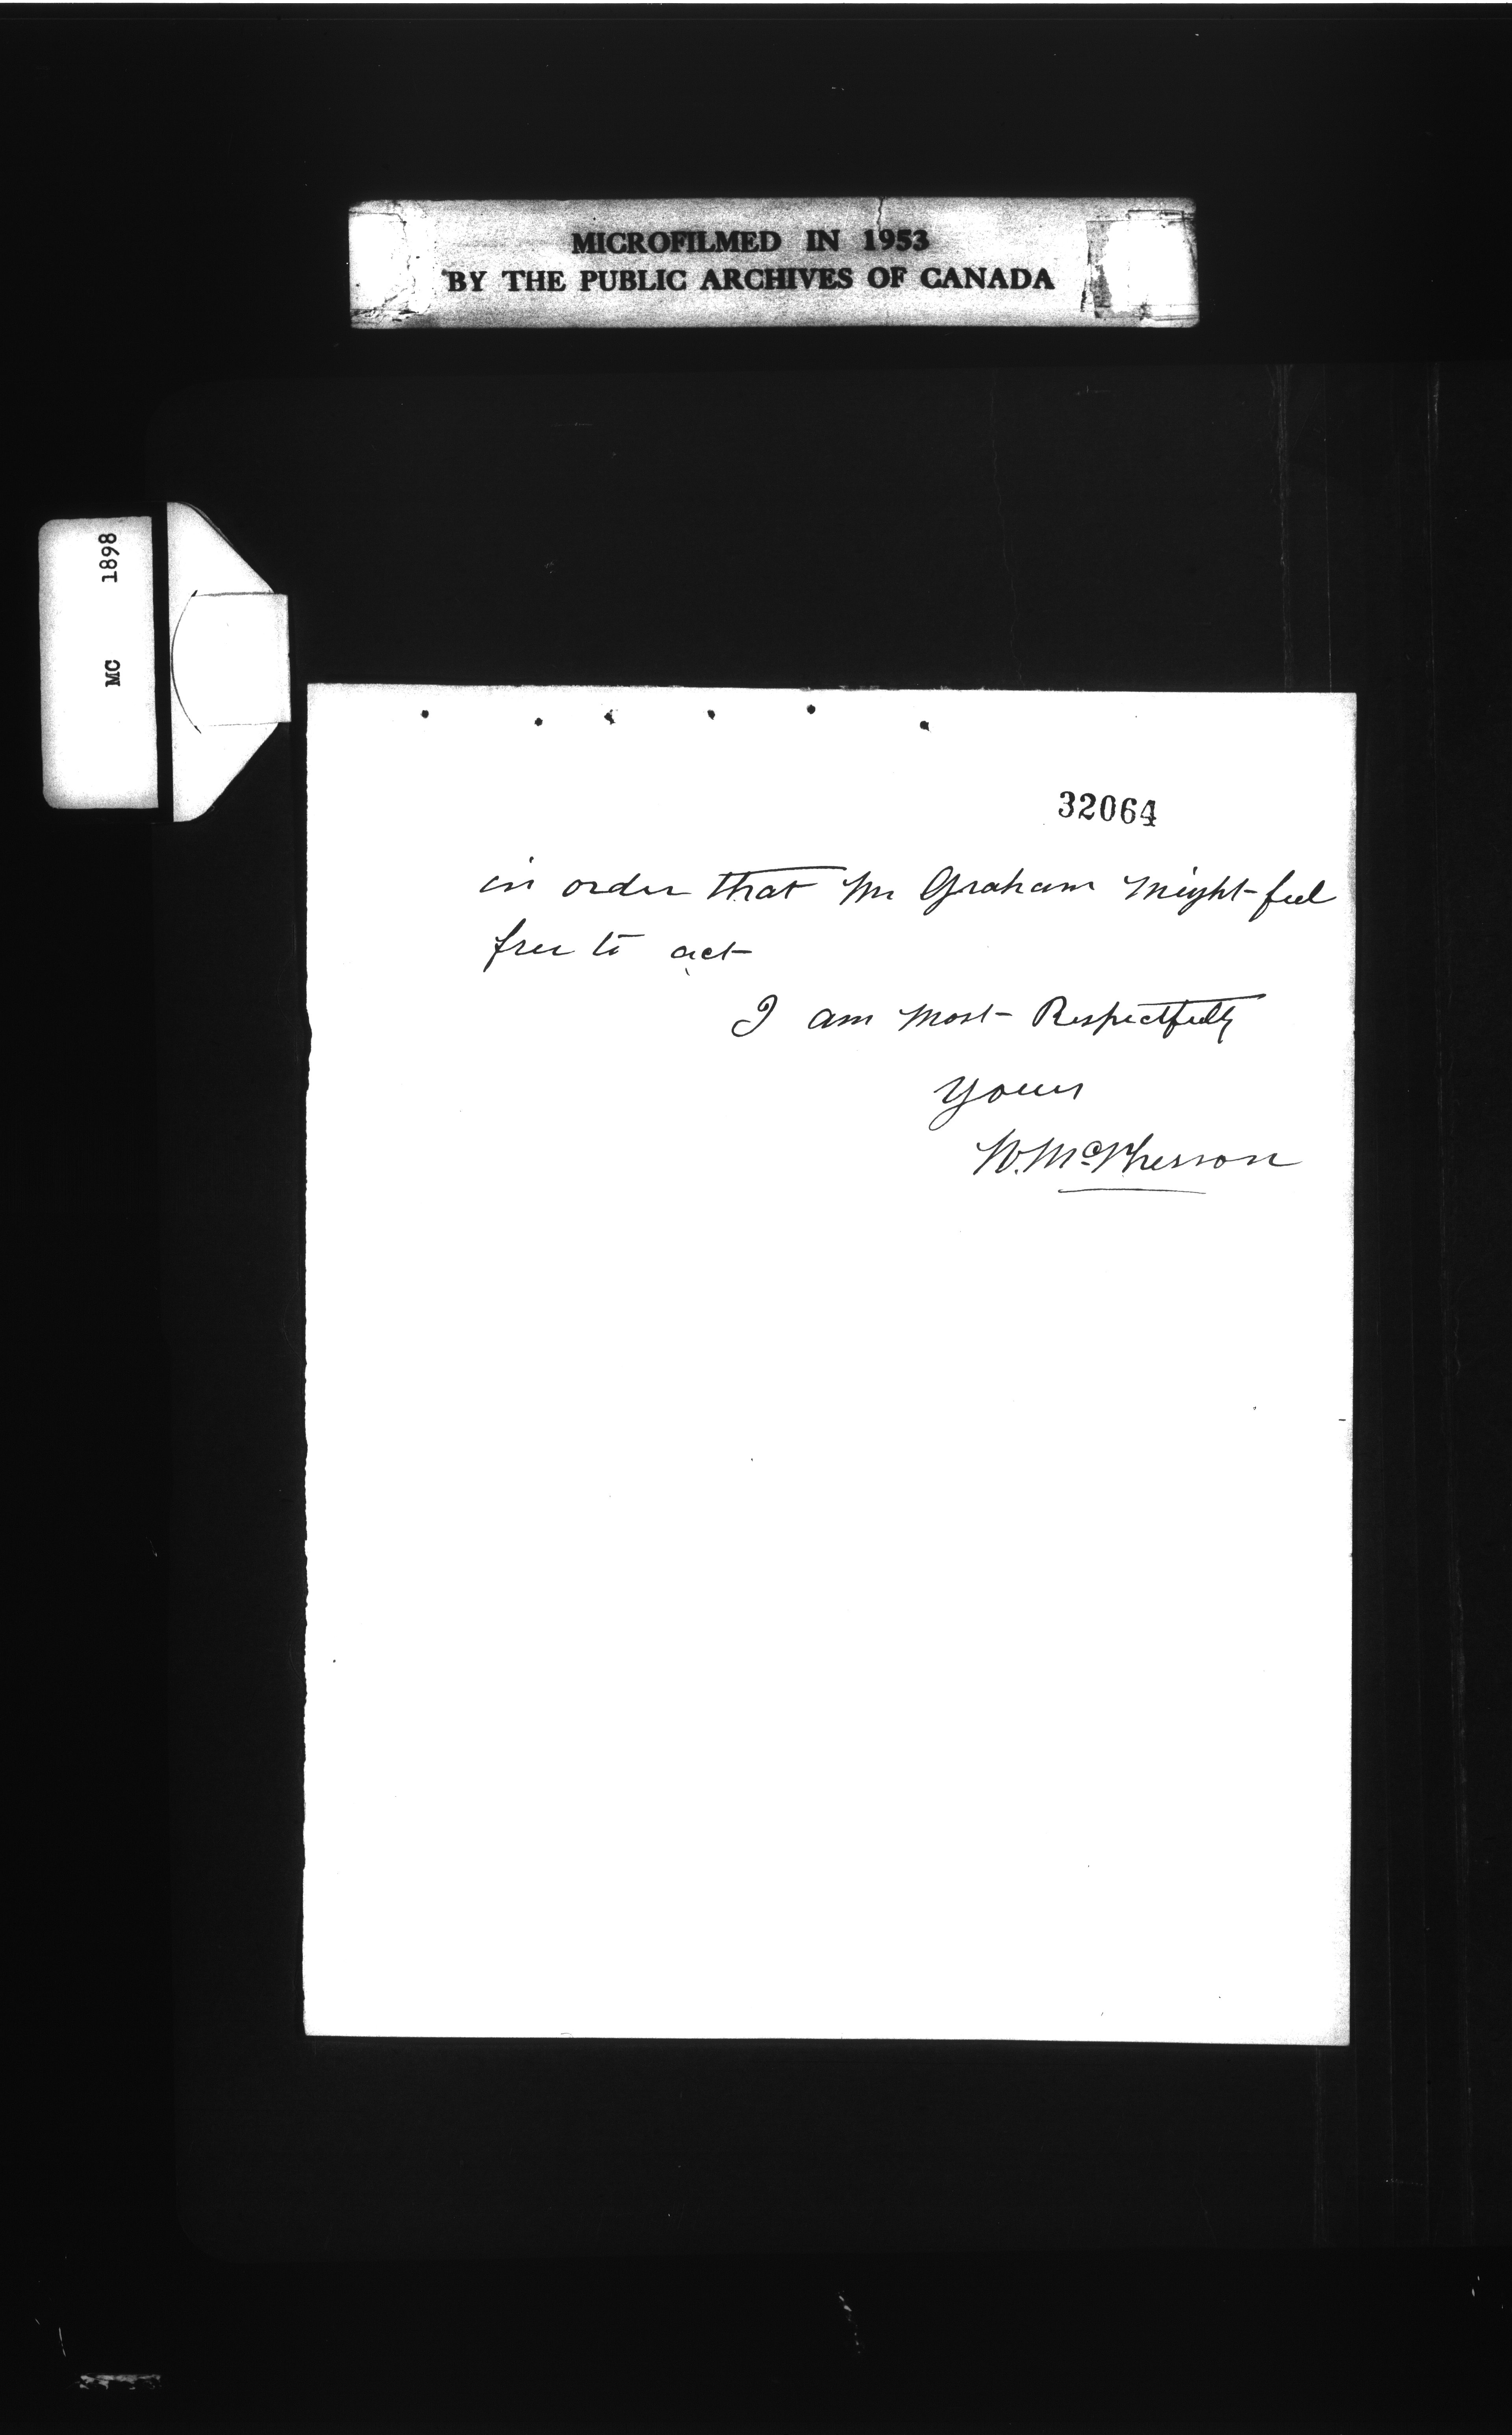 MICROFILMED IN 1953
BY THE PUBLIC ARCHIVES OF CANADA
MC 1898
32064
in order that Mr Graham might feel
free to act
I am most Respectfully
yours
W. McPherson